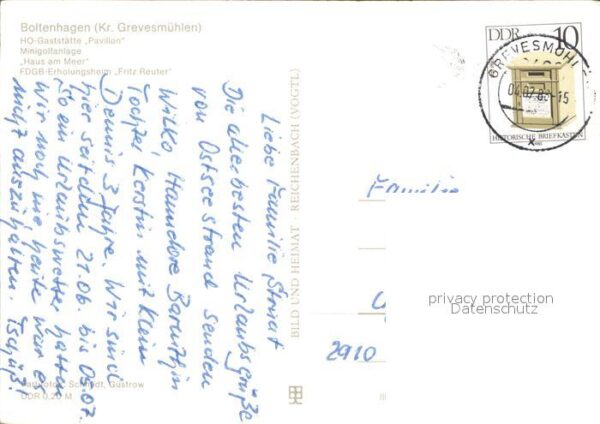 Boltenhagen (Kr. Grevesmühlen)
HO-Gaststätte „Pavillon"
Minigolfanlage
„Haus am Meer"
FDGB-Erholungsheim „Fritz Reuter"
DDR 10
GREVESMÜHL
-15
HISTORISCHE BRIEFKÄSTEN
Liebe Familie
Die allerbesten Urlaubsgrüße
vom Ostseestrand senden
Wilko, Hannelore
Tochter Kerstin mit Klein
Dennis 3 Jahre. Wir sind
hier seit dem 21.06. bis 05.07.
So ein Urlaubswetter hatten
wir noch nie heute war es
nicht auszuhalten. Tschüß!
BILD UND HEIMAT REICHENBACH (VOGTL)
Familie
2910
privacy protection
Datenschutz
Schmidt, Güstrow
DDR 0,20 M